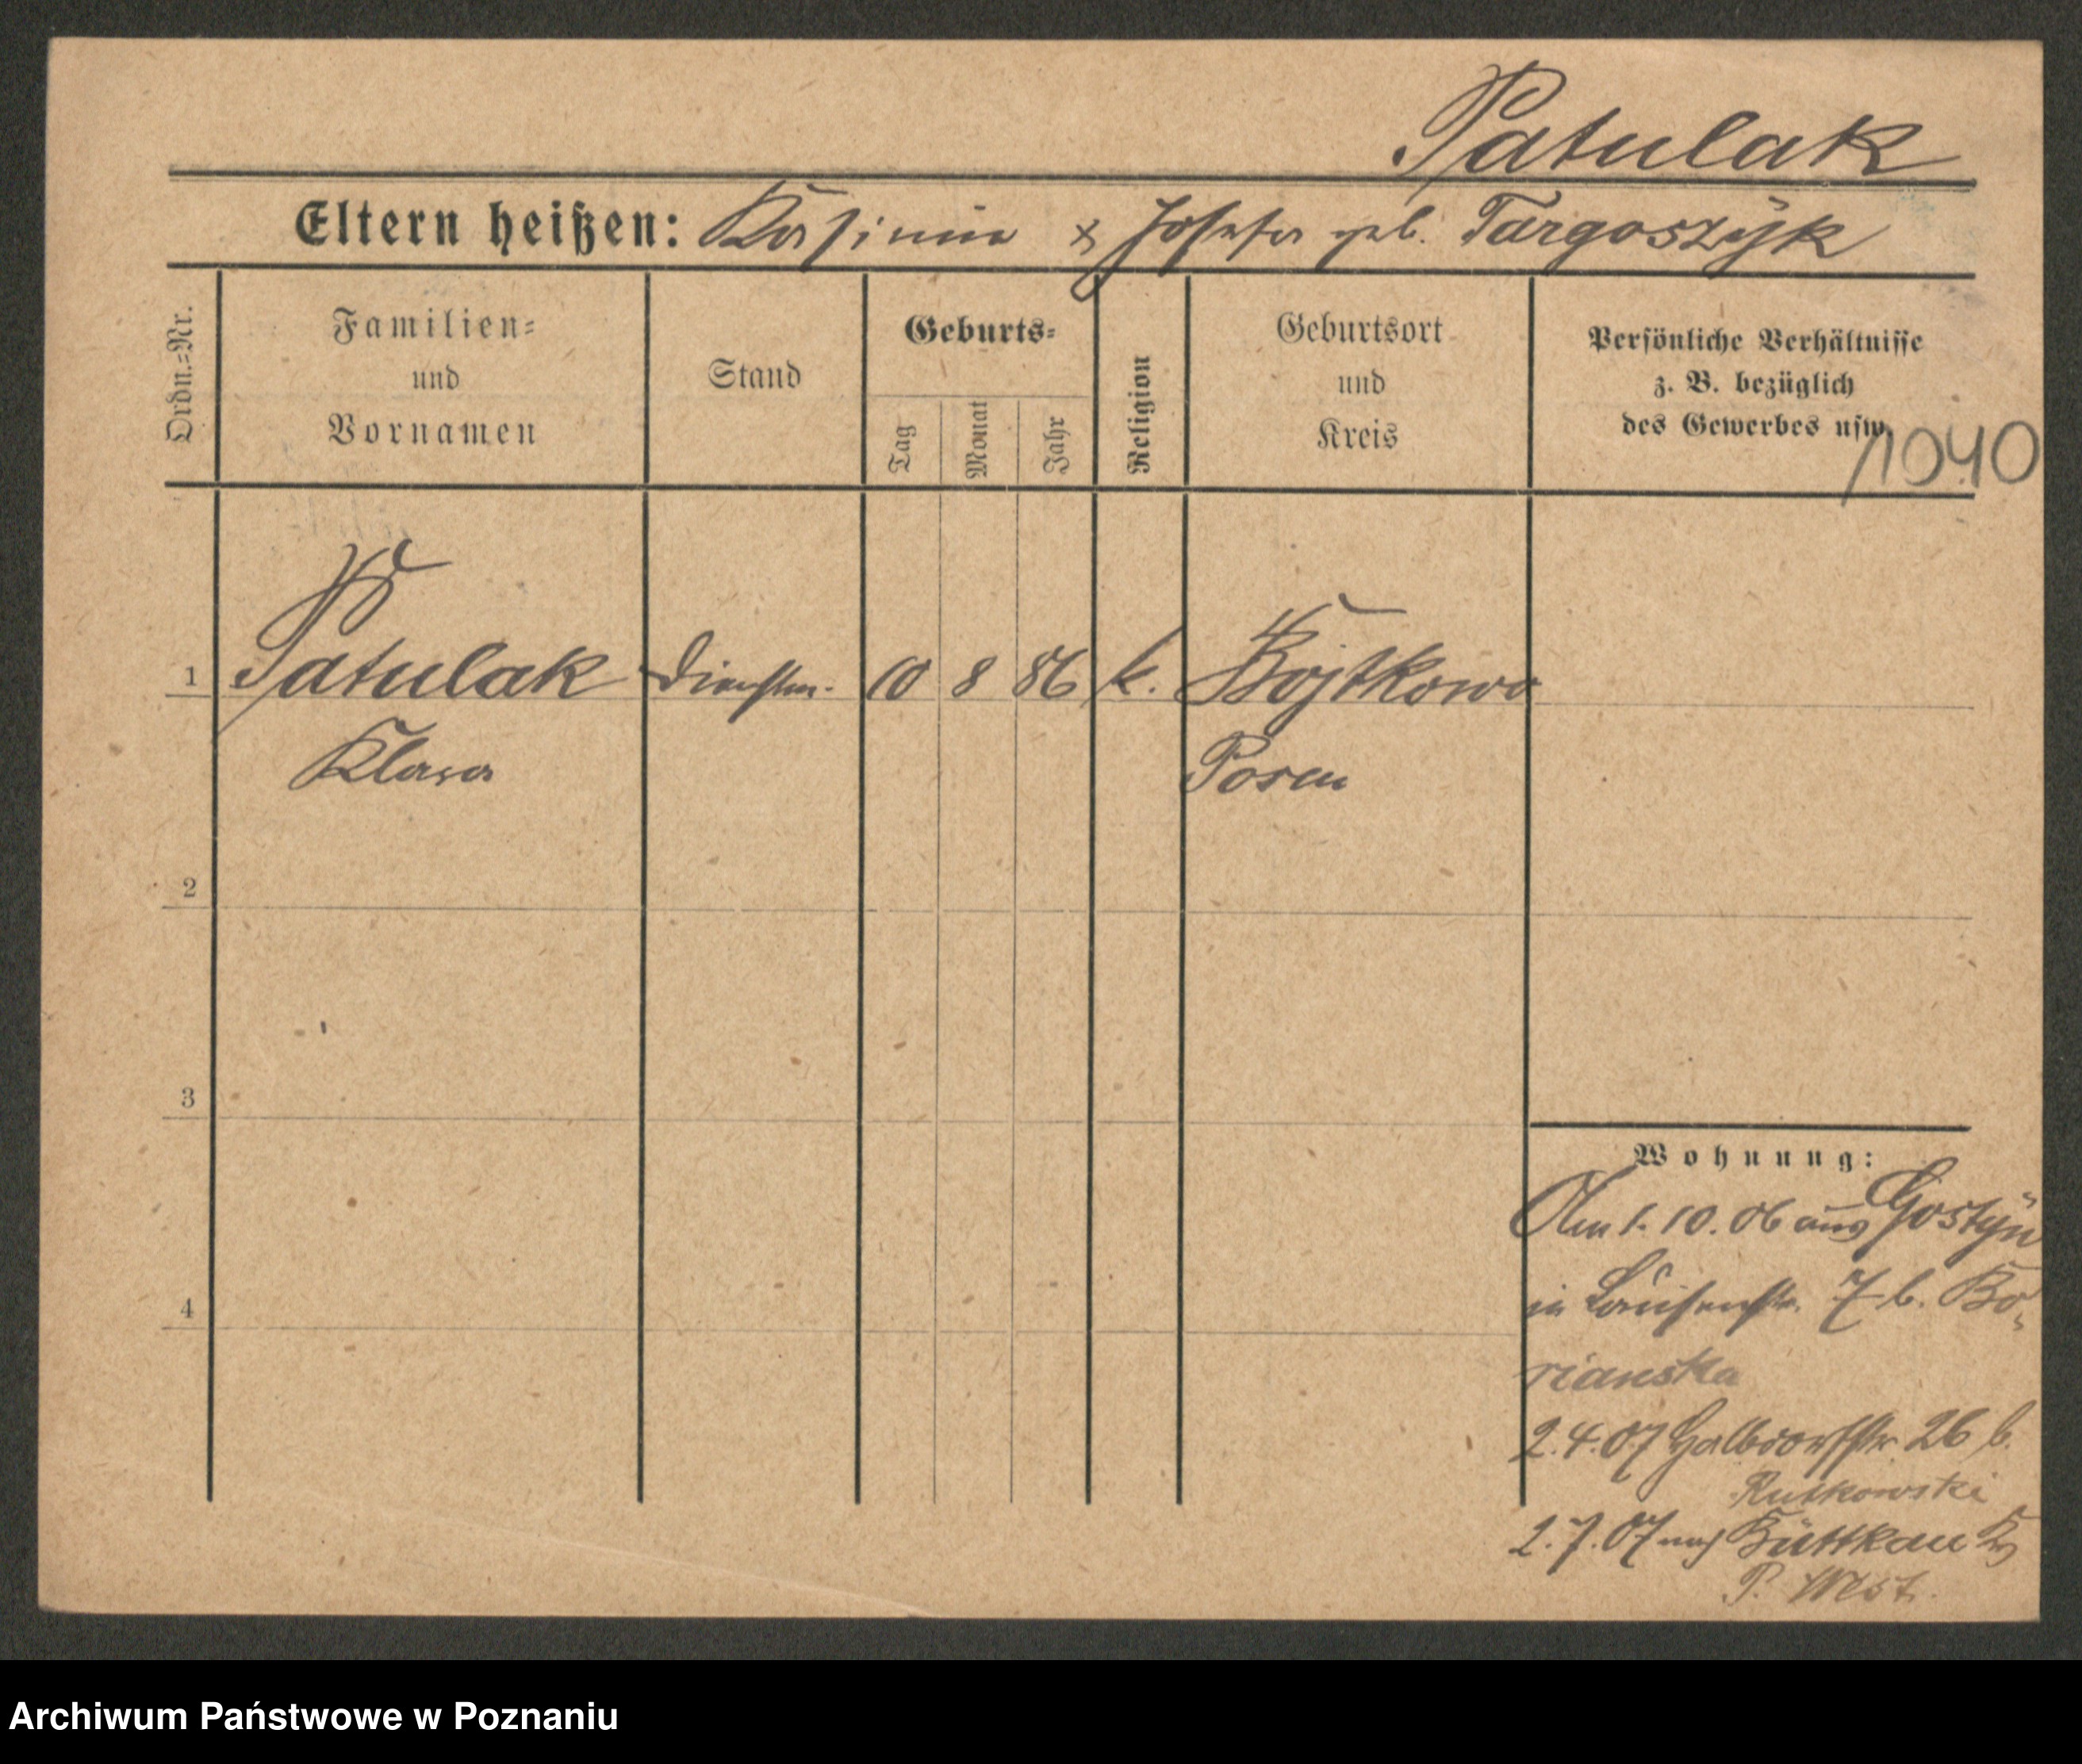 Patulak
Eltern heißen: Kasimir & Josefa geb. Targoszyk
Ordn.=Nr.
Familien=
und
Vornamen
Stand
Geburts=
Tag
Monat
Jahr
Religion
Geburtsort
und
Kreis
Persönliche Verhältnisse
z. B. bezüglich
des Gewerbes usw.
1040
1 Patulak Dienstm. 10 8 86 k. Bojtkowo
Klara Posen
2
3
4
Wohnung:
Am 1. 10. 06 aus Gostyn
in Louisenstr. 7 b. Bo-
rianska
2. 4. 07 Halbdorfstr 26 b.
Rutkowski
2. 7. 07 nach
P. West.